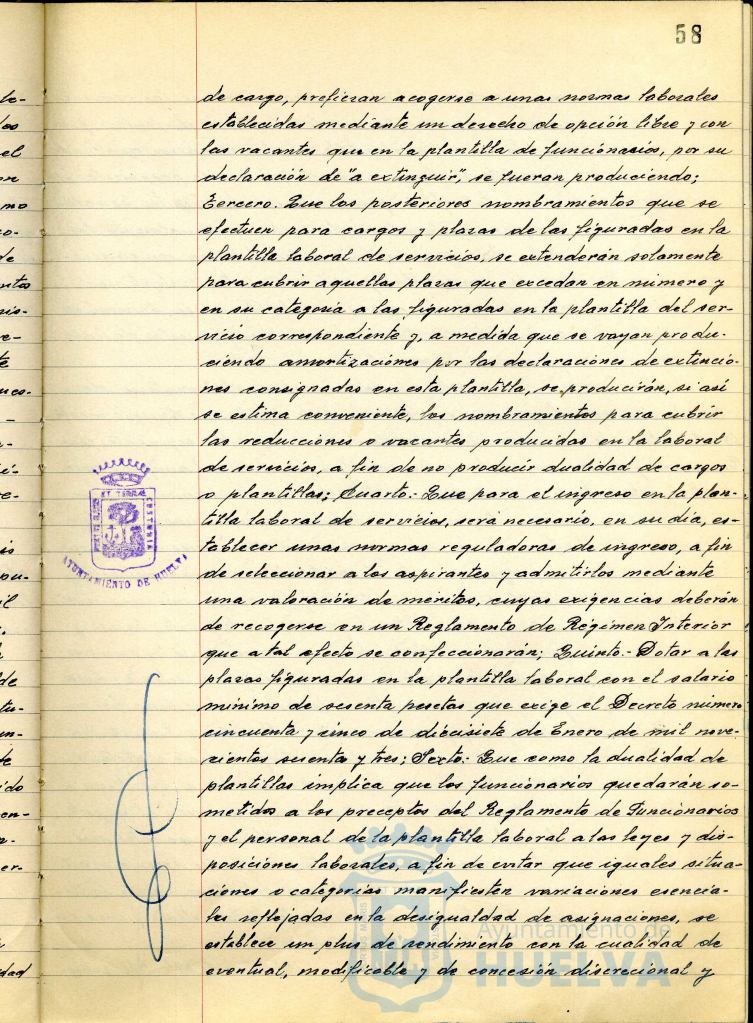 58
de cargo, prefieran acogerse a unas normas laborales
establecidas mediante un derecho de opción libre y con
las vacantes que en la plantilla de funcionarios, por su
declaración de "a extinguir", se fueran produciendo;
Tercero. Que los posteriores nombramientos que se
efectuen para cargos y plazas de las figuradas en la
plantilla laboral de servicios, se extenderán solamente
para cubrir aquellas plazas que excedan en número y
en su categoria a las figuradas en la plantilla del ser-
vicio correspondiente y, a medida que se vayan produ-
ciendo amortizaciones por las declaraciones de extincio-
nes consignadas en esta plantilla, se producirán, si así
se estima conveniente, los nombramientos para cubrir
las reducciones o vacantes producidas en la laboral
de servicios, a fin de no producir dualidad de cargos
o plantillas; Cuarto.- Que para el ingreso en la plan-
tilla laboral de servicios, será necesario, en su día, es-
tablecer unas normas reguladoras de ingreso, a fin
de seleccionar a los aspirantes y admitirlos mediante
una valoración de méritos, cuyas exigencias deberán
de recogerse en un Reglamento de Régimen Interior
que a tal efecto se confeccionarán; Quinto.- Dotar a las
plazas figuradas en la plantilla laboral con el salario
mínimo de sesenta pesetas que exige el Decreto número
cincuenta y cinco de diecisiete de Enero de mil nove-
cientos sesenta y tres; Sexto.- Que como la dualidad de
plantillas implica que los funcionarios quedarán so-
metidos a los preceptos del Reglamento de Funcionarios
y el personal de la plantilla laboral a las leyes y dis-
posiciones laborales, a fin de evitar que iguales situa-
ciones o categorias manifiesten variaciones esencia-
les reflejadas en la desigualdad de asignaciones, se
establece un plus de rendimiento con la cualidad de
eventual, modificable y de concesión discrecional y
AYUNTAMIENTO DE HUELVA
Ayuntamiento de
HUELVA